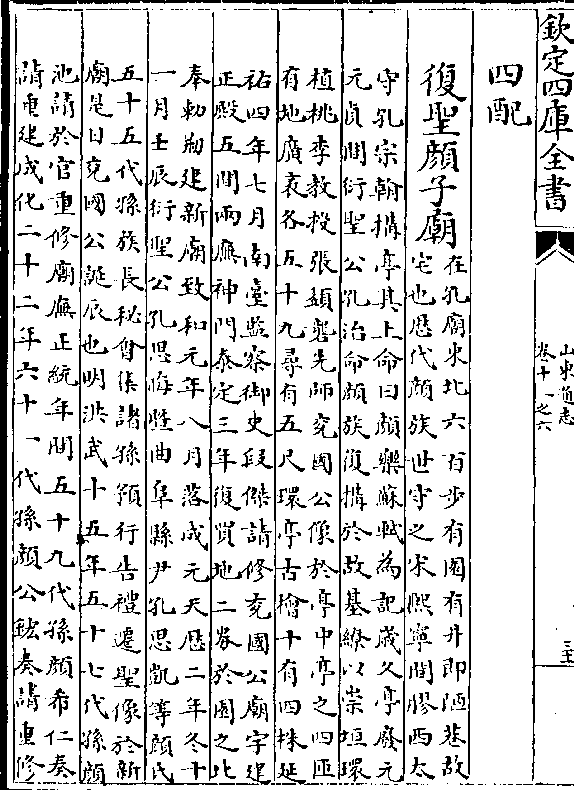 欽定四庫全書
山東通志
卷十一之六
四配
復聖顔子廟
在孔廟東北六百步有園有井即陋巷故
宅也歴代顔族世守之宋熙寧間膠西太
守孔宗翰搆亭其上命曰顔樂蘇軾為記歲久亭廢元
元貞間衍聖公孔治命顔族復搆於故基繚以崇垣環
植桃李教授張礱先師兖國公像於亭中亭之四匝
有地廣袤各五十九尋有五尺環亭古檜十有四株延
祐四年七月南臺監察御史段傑請修兖國公廟宇建
正殿五間兩廡神門泰定三年復買地二畝於園之北
奉勅剏建新廟致和元年八月落成元天歴二年冬十
一月壬辰衍聖公孔思晦曁曲阜縣尹孔思凱等顔氏
五十五代孫族長秘㑹集諸孫預行告禮遷聖像於新
廟是日兖國公誕辰也明洪武十五年五十七代孫顔
池請於官重修廟廡正統年間五十九代孫顔希仁奏
請重建成化二十二年六十一代孫顔公鋐奏請重修